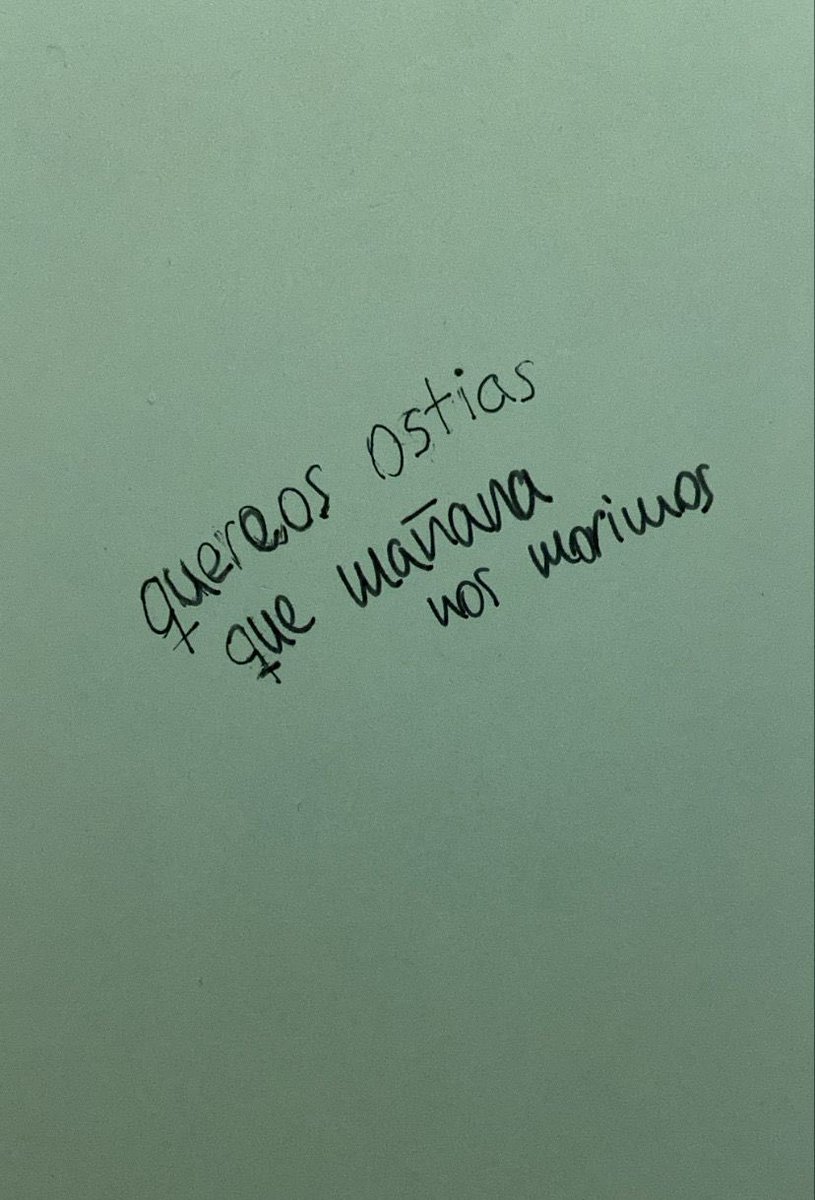 quereos ostias
que mañana
nos morimos